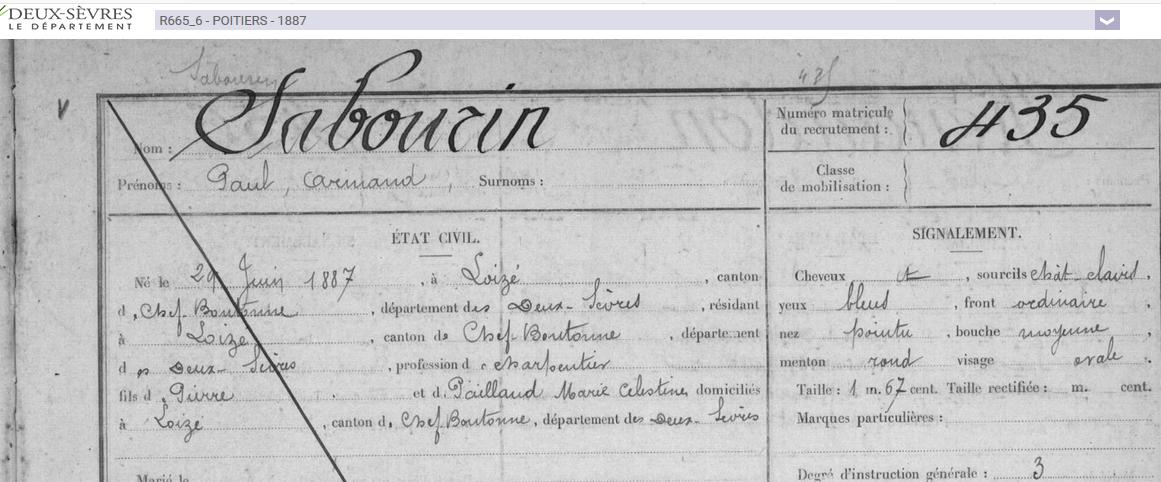 DEUX-SÈVRES
LE DÉPARTEMENT
R665_6 - POITIERS - 1887
Sabourin
435
Nom : Sabourin
Numéro matricule du recrutement : 435
Prénoms : Paul, Armand, Surnoms :
Classe de mobilisation :
ÉTAT CIVIL.
Né le 29 Juin 1887, à Loizé, canton
d, Chef Boutonne, département des Deux-Sèvres, résidant
à Loizé, canton de Chef Boutonne, département
d es Deux-Sèvres, profession d e charpentier
fils d, Pierre et d, Paillaud Marie Celestine, domiciliés
à Loizé, canton d, Chef Boutonne, département des Deux-Sèvres
Marié le
SIGNALEMENT.
Cheveux et, sourcils chât clairs,
yeux bleus, front ordinaire,
nez pointu, bouche moyenne,
menton rond visage ovale
Taille : 1 m. 67 cent. Taille rectifiée : m. cent.
Marques particulières :
Degré d'instruction générale : 3